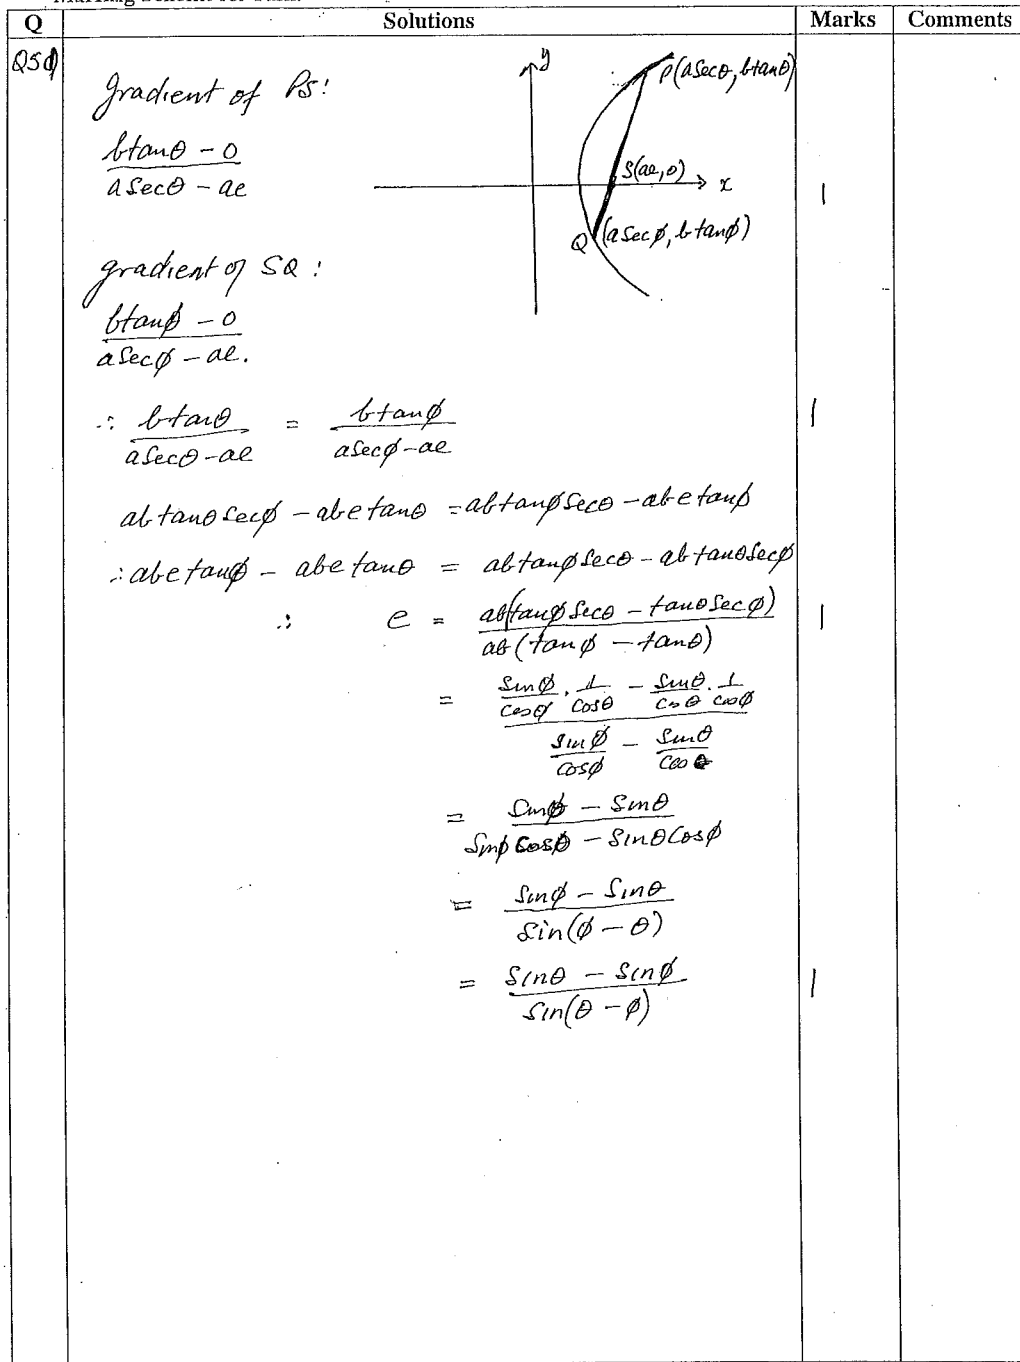 Q Solutions Marks Comments
Q5d)
gradient of PS:
btanθ - 0 / asecθ - ae
y
P(asecθ, btanθ)
S(ae, 0)
x
Q (asecφ, btanφ)
1
gradient of SQ:
btanφ - 0 / asecφ - ae.
∴ btanθ / asecθ - ae = btanφ / asecφ - ae
1
abtanθsecφ - abetanθ = abtanφsecθ - abetanφ
∴ abetanφ - abetanθ = abtanφsecθ - abtanθsecφ
∴ e = ab(tanφsecθ - tanθsecφ) / ab(tanφ - tanθ)
1
= sinφ/cosφ . 1/cosθ - sinθ/cosθ . 1/cosφ / sinφ/cosφ - sinθ/cosθ
= sinφ - sinθ / sinφcosθ - sinθcosφ
= sinφ - sinθ / sin(φ - θ)
= sinθ - sinφ / sin(θ - φ)
1